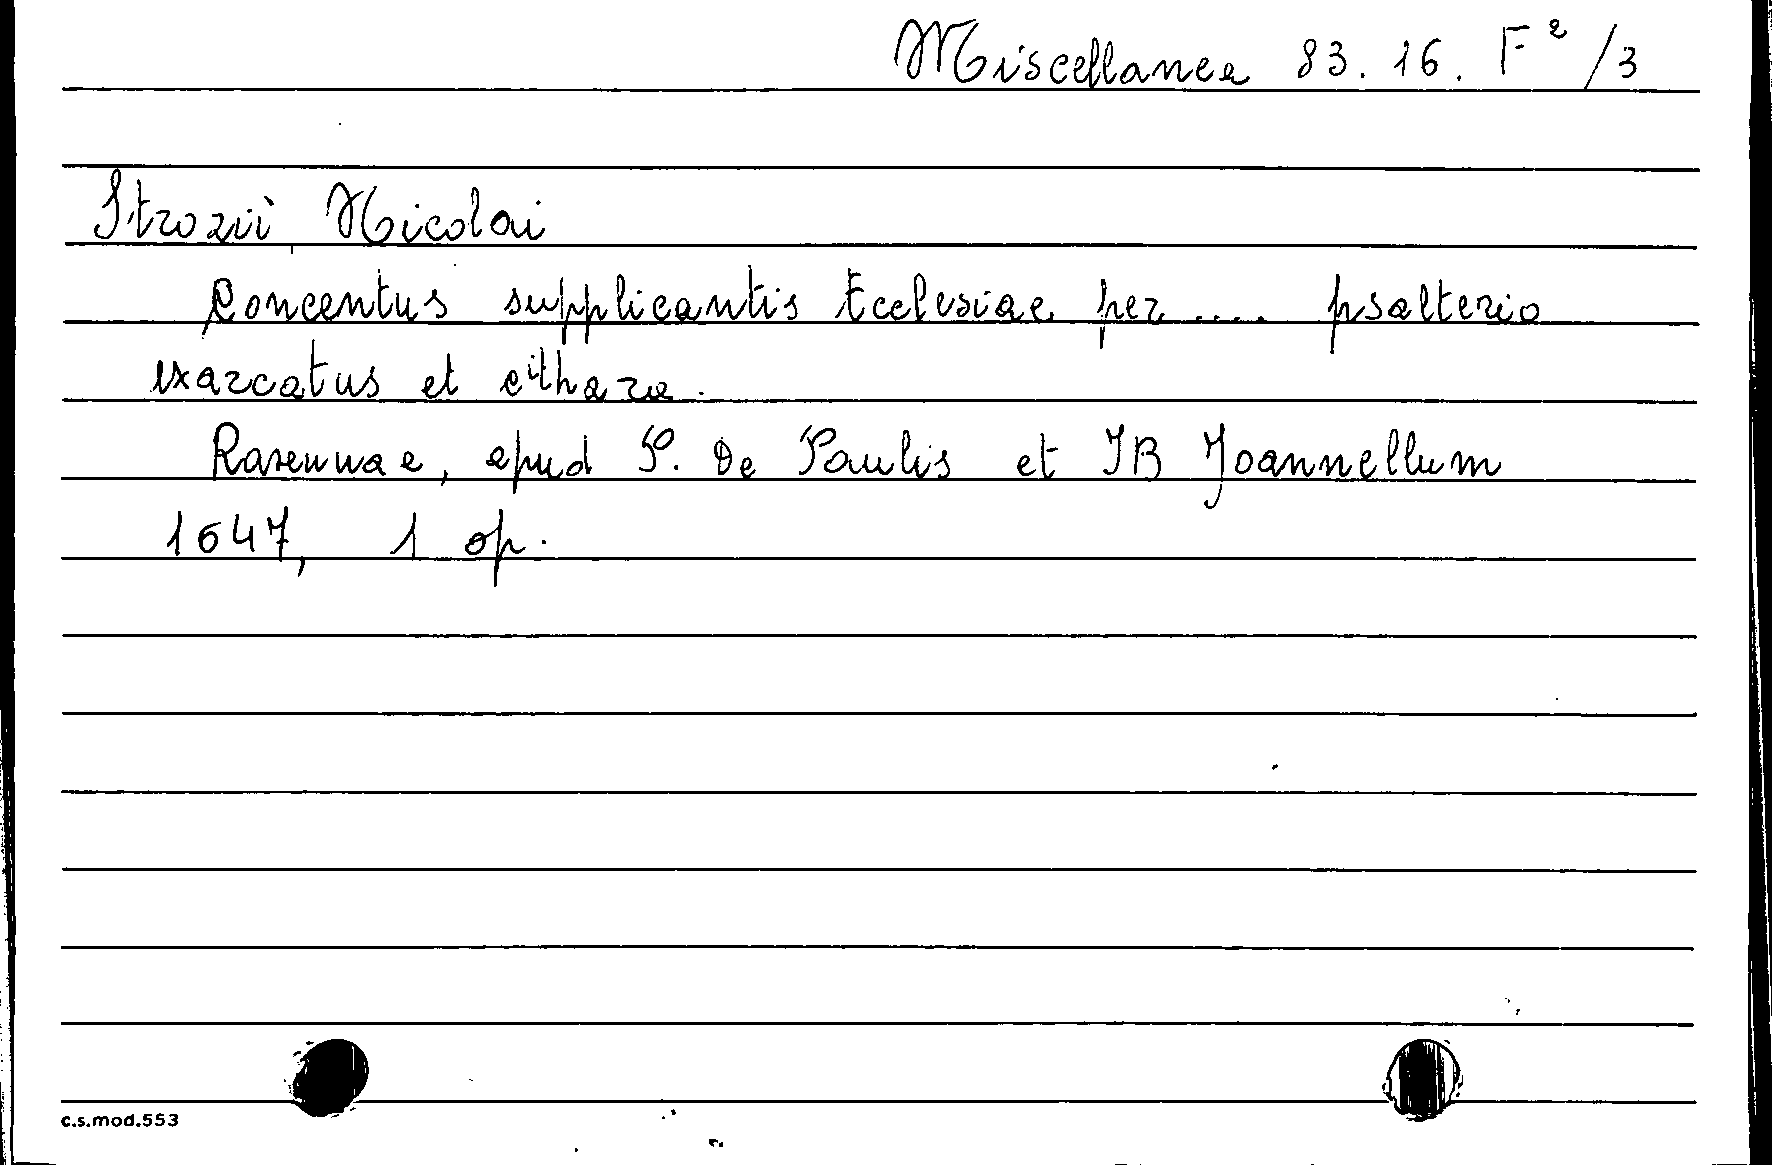 Miscellanea 83. 16. F² /3
Strozii Nicolai
Concentus supplicantis Ecclesiae per .... psalterio
exarcatus et cithara.
Ravennae, apud P. De Paulis et JB Joannellum
1647, 1 op.
c.s.mod.553